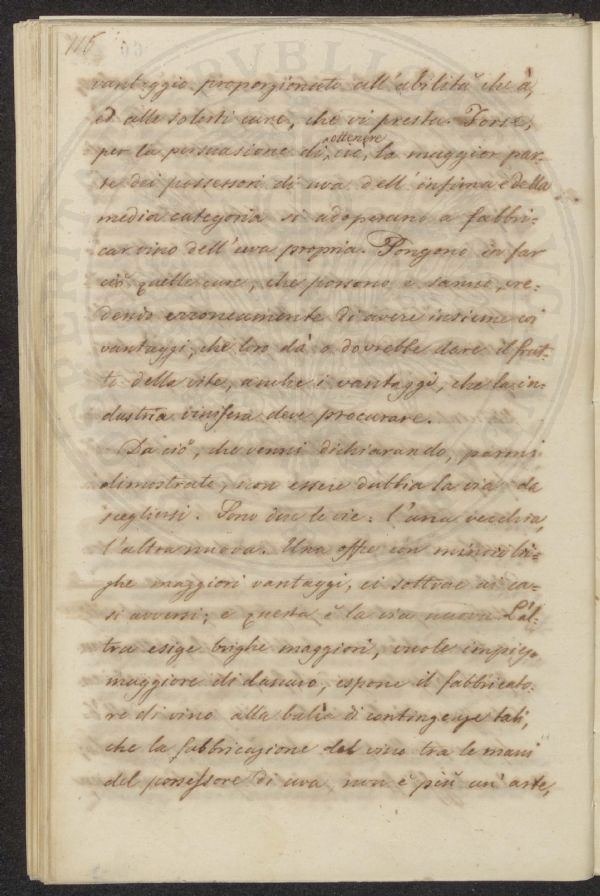 116
vantaggio proporzionato all'abilità che à,
ed alle solerti cure, che vi presta. Forse,
ottenere
per la persuasione di ciò, la maggior par-
te dei possessori di uva dell'infima e della
media categoria si adoperano a fabbri-
car vino dell'uva propria. Pongono in far
ciò quelle cure, che possono e sanno, cre-
dendo erroneamente di avere insieme coi
vantaggi, che loro dà o dovrebbe dare il frut-
to della vite, anche i vantaggi, che la in-
dustria vinifera deve procurare.
Da ciò, che venni dichiarando, parmi
dimostrato, non essere dubbia la via da
scegliersi. Sono due le vie: l'una vecchia,
l'altra nuova. Una offre con minori bri-
ghe maggiori vantaggi, ci sottrae ai ca-
si avversi; e questa è la via nuova. L'al-
tra esige brighe maggiori, vuole impiego
maggiore di danaro, espone il fabbricato-
re di vino alla balìa di contingenze tali,
che la fabbricazione del vino tra le mani
del possessore di uva, non è più un'arte,